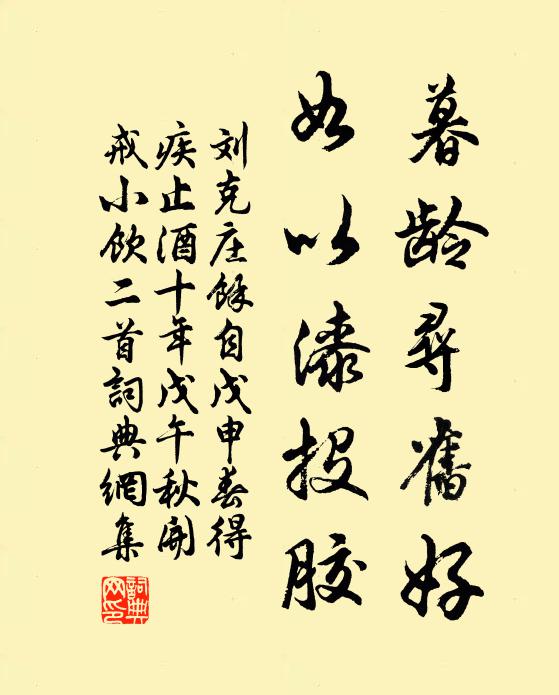 暮龄尋舊好
如以漆投胶
刘克庄馀自戊申春得
疾止酒十年戊午秋開
戒小飲二首詞典網集
詞典
网印